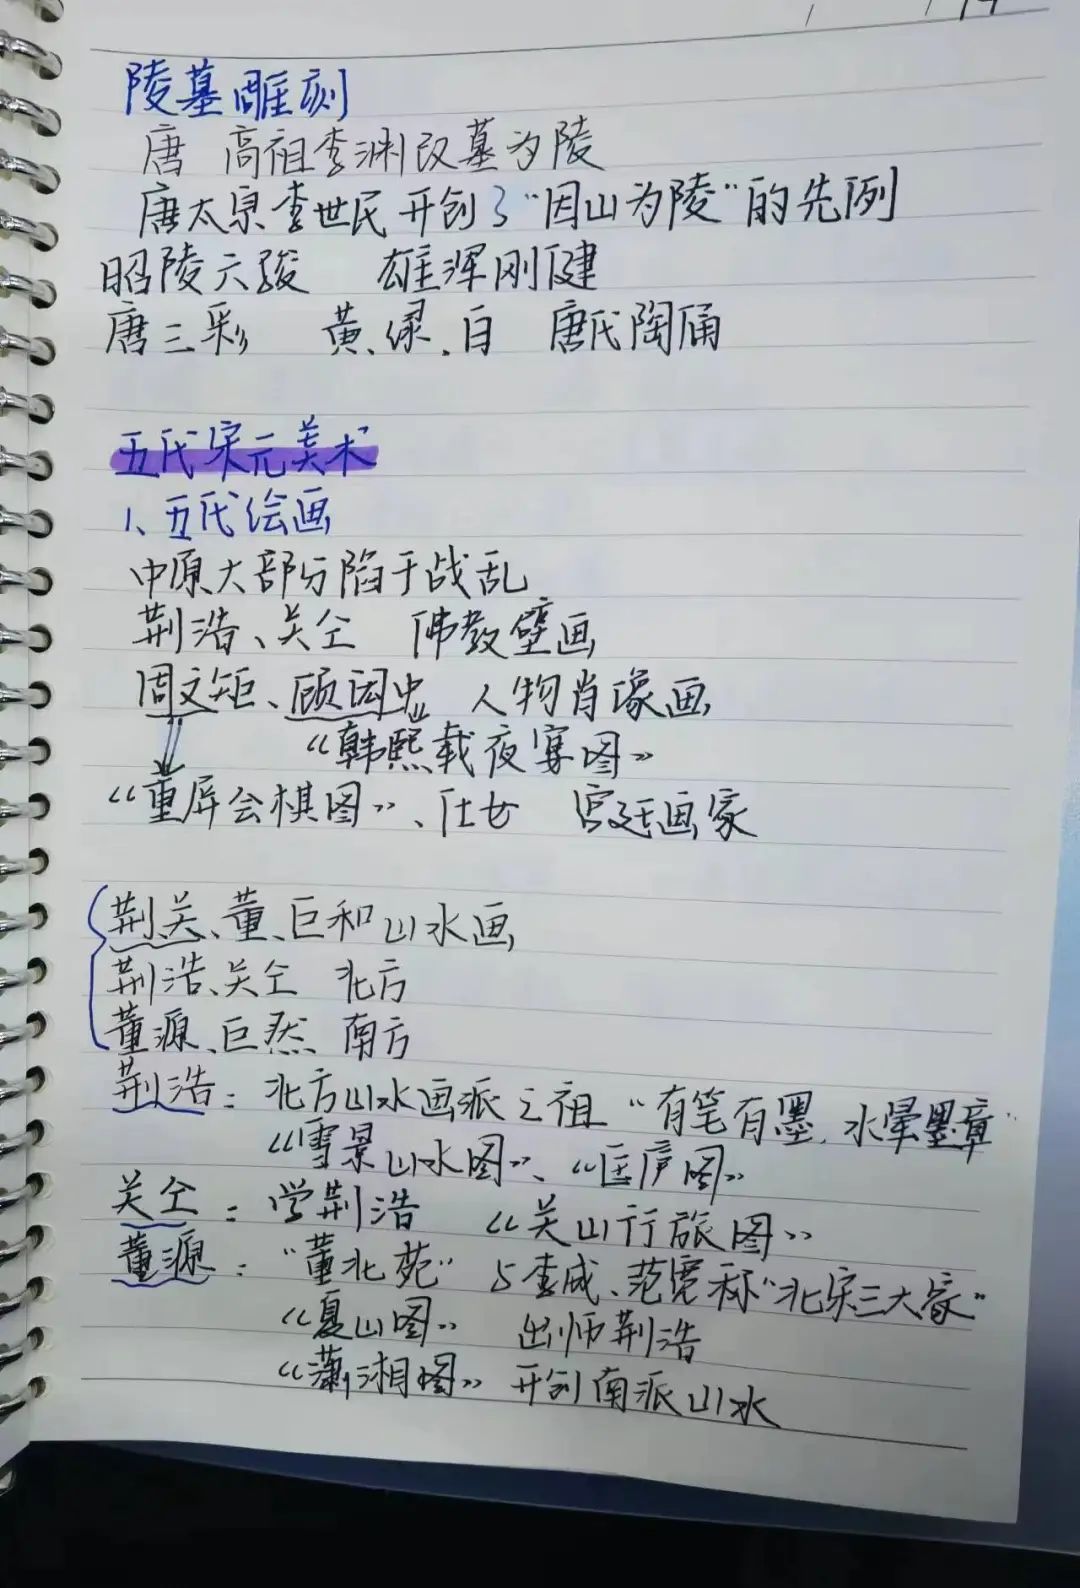 陵墓雕刻
唐 高祖李渊改墓为陵
唐太宗李世民开创了“因山为陵”的先例
昭陵六骏 雄浑刚健
唐三彩 黄、绿、白 唐代陶俑
五代宋元美术
1、五代绘画
中原大部分陷于战乱
荆浩、关仝 佛教壁画
周文矩、顾闳中 人物肖像画
《韩熙载夜宴图》
《重屏会棋图》、仕女 宫廷画家
荆、关、董、巨和山水画
荆浩、关仝 北方
董源、巨然 南方
荆浩：北方山水画派之祖“有笔有墨，水晕墨章”
《雪景山水图》、《匡庐图》
关仝：学荆浩 《关山行旅图》
董源：“董北苑”与李成、范宽称“北宋三大家”
《夏山图》 出师荆浩
《潇湘图》 开创南派山水